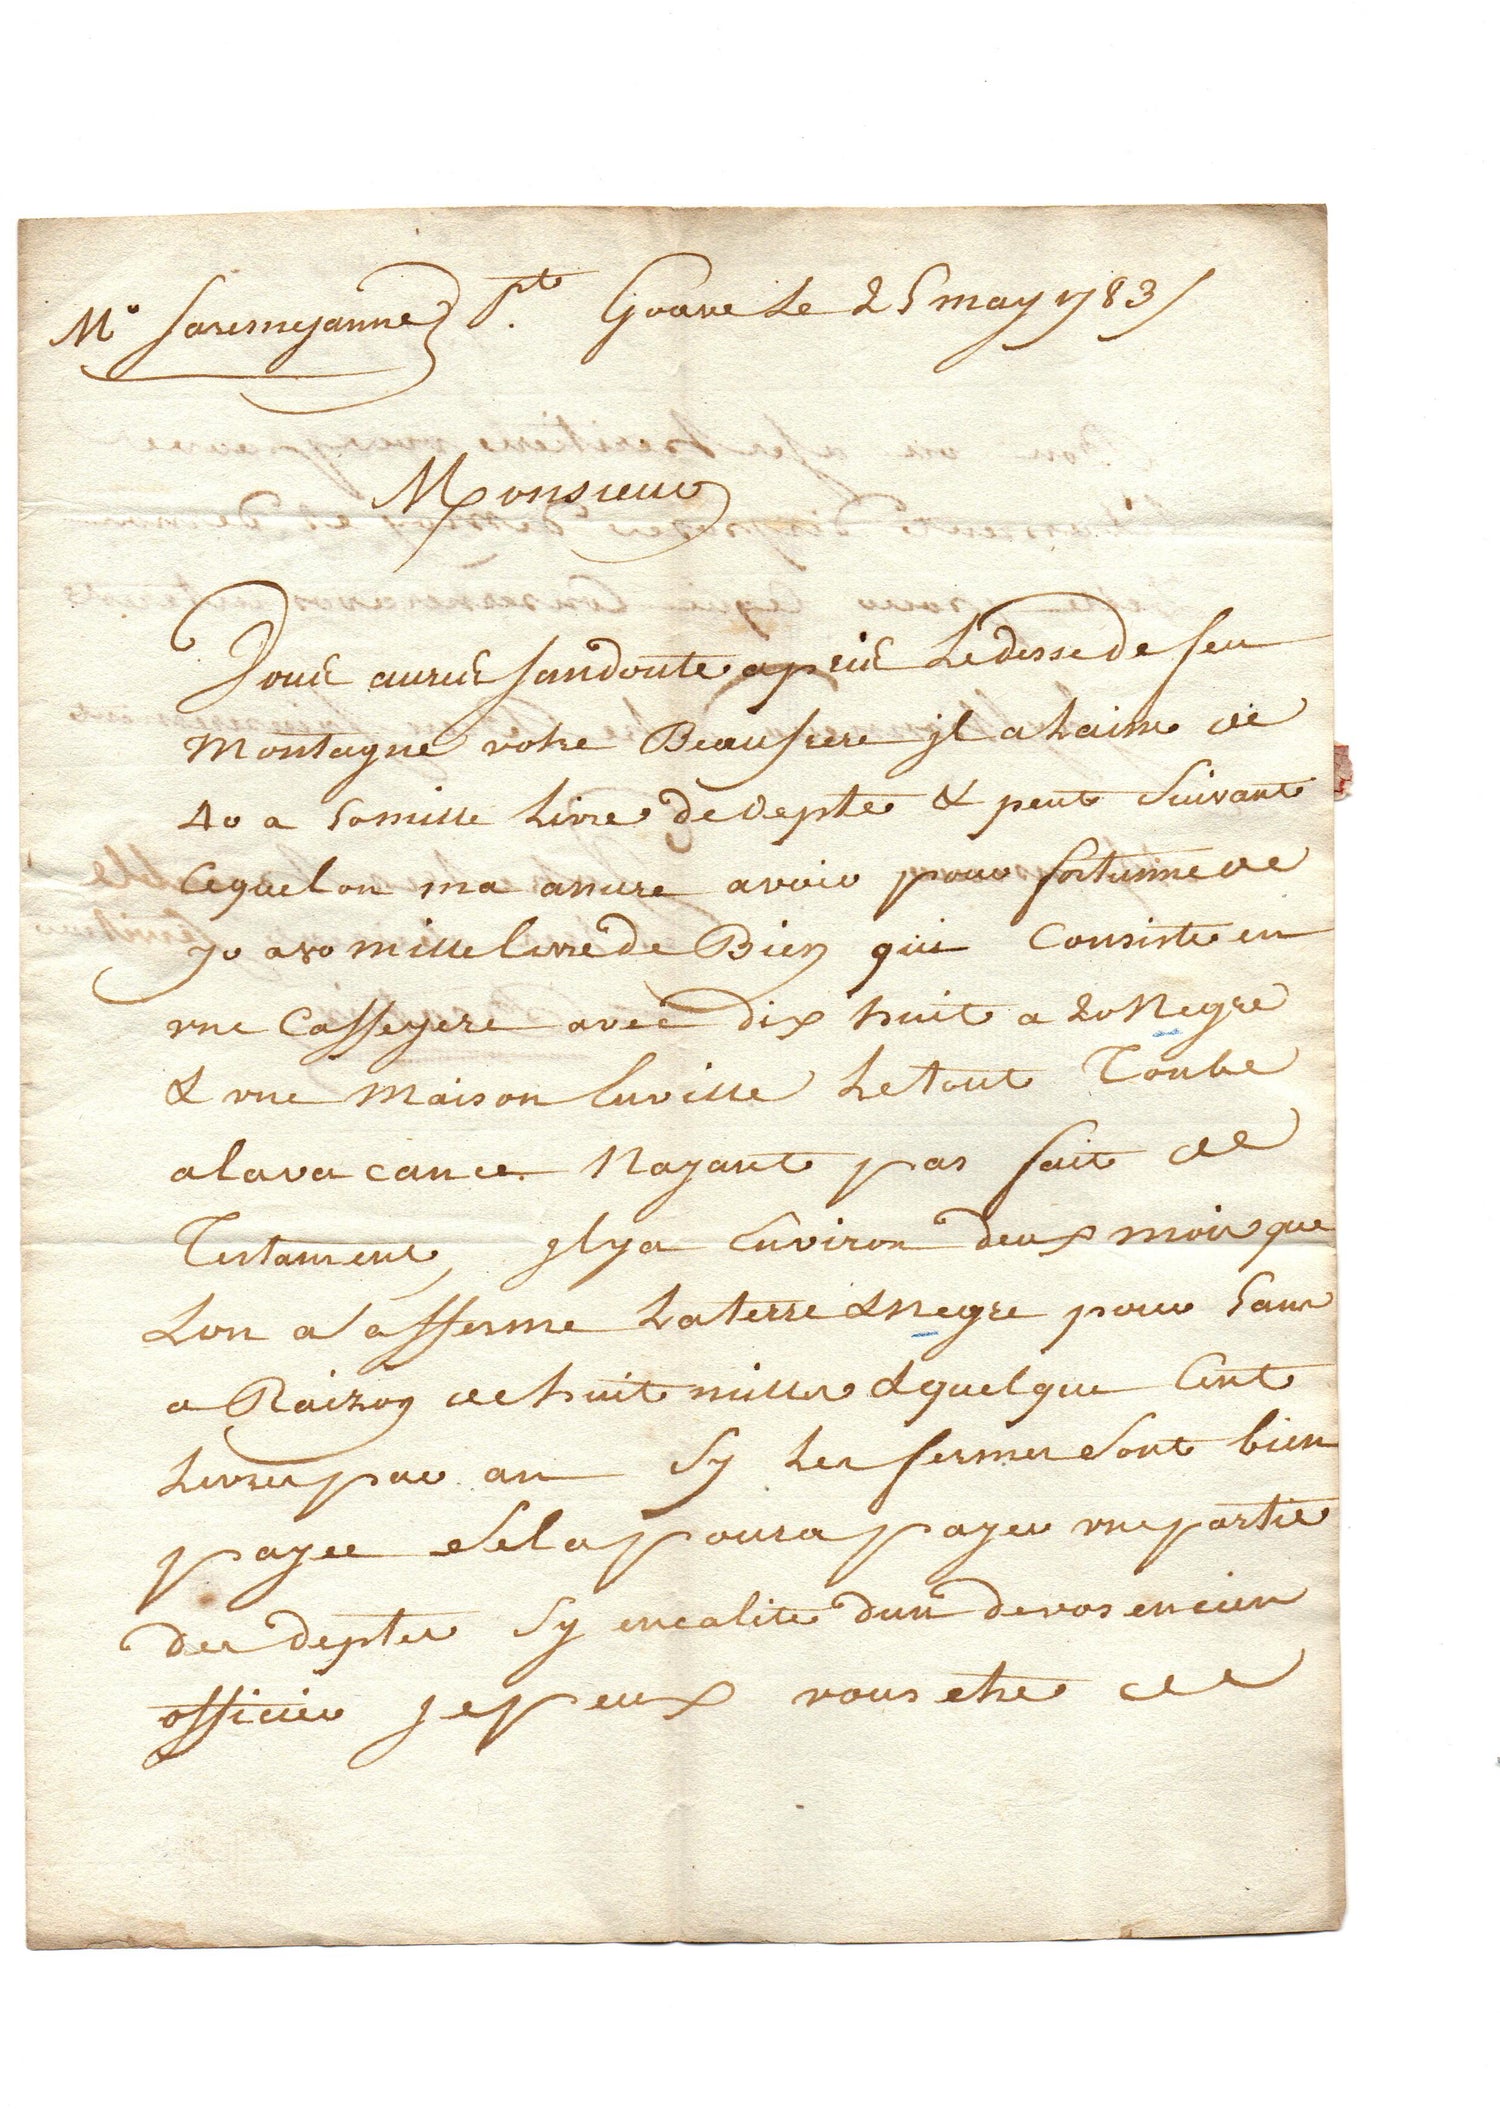 Mr Saremejanne pt. Goave Le 25 may 1783
Monsieur
Vous aures sandoute apris Le desse de feu
Montagne votre Beaufrere jl a Laisse de
40 a 50 mille Livre de depte & peut Suivant
Cequelon ma assure avoir pour fortunne de
70 a 80 mille livre de Bien qui Consiste en
vne Caffeyere avec dix huit a 20 Negre
& vne Maison Enville Le tout Tombe
a lavacance Nayant pas fait de
Testament, jlya Environ deux mois que
Lon a afferme La terre & negre pour 5 ans
a Raizon de huit milles & quelque Cent
Livres par an Sy Les fermes Sont bien
payee Sela poura payer vne partie
des deptes Sy encalite dun de vos encien
officier je peux vous etre de